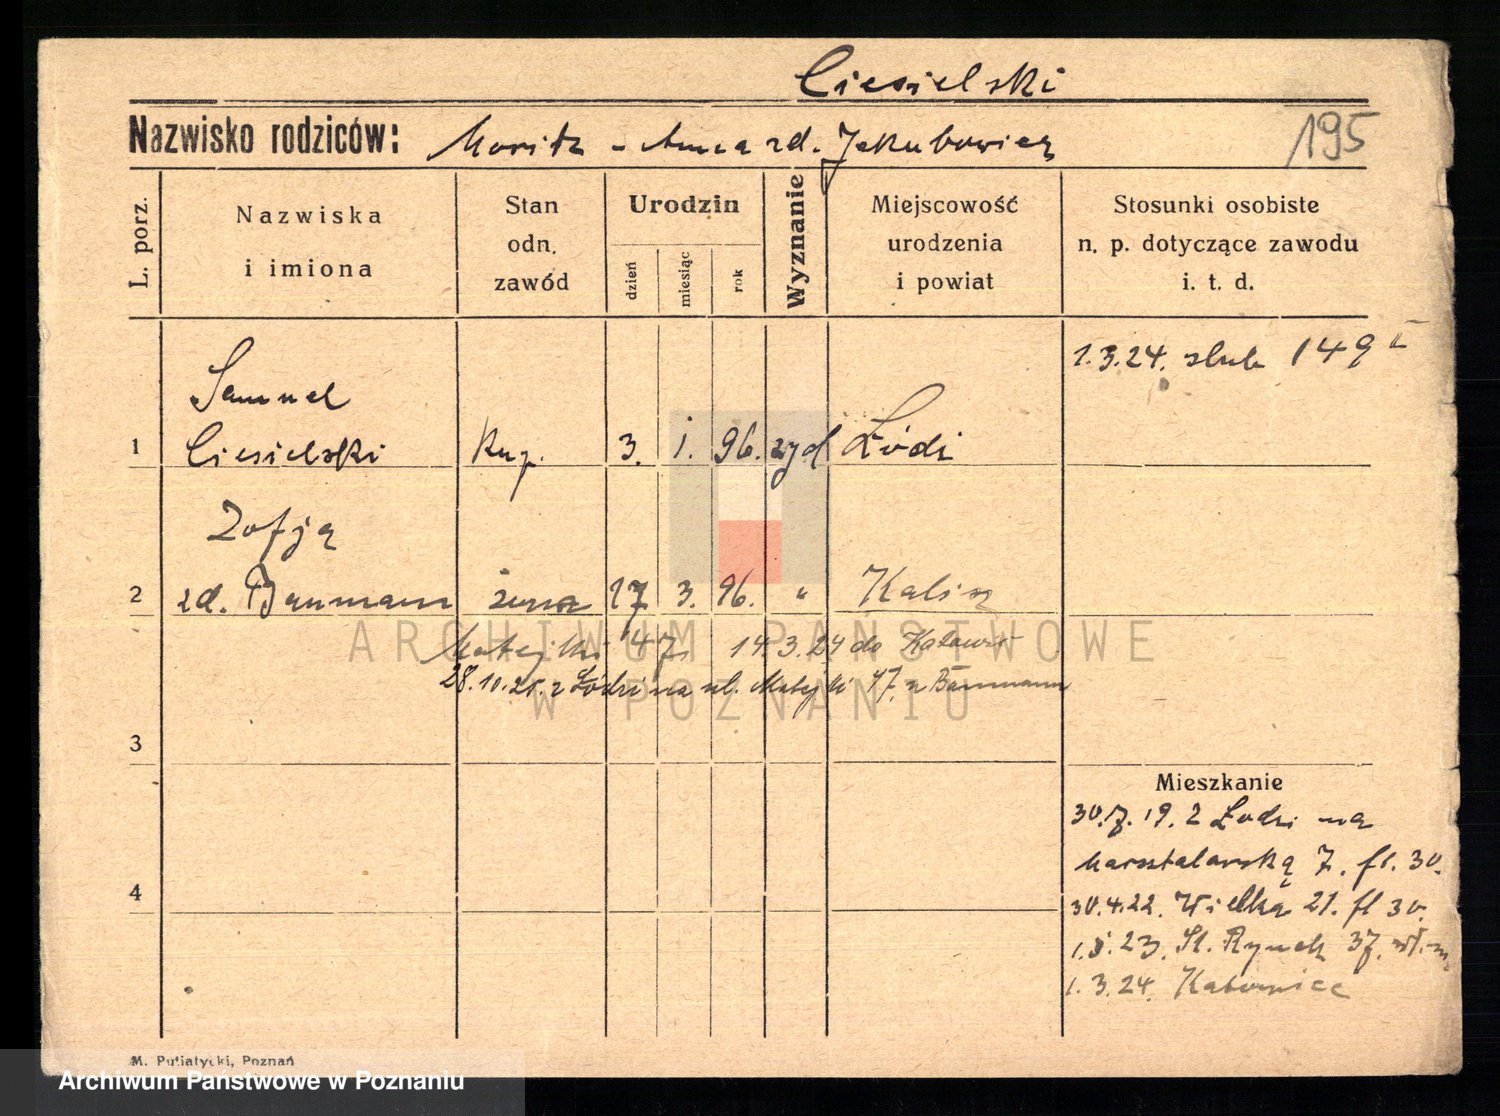 Ciesielski
Nazwisko rodziców: Moritz - Anna zd. Jakubowicz
195
L. porz.
Nazwiska
i imiona
Stan
odn.
zawód
Urodzin
dzień
miesiąc
rok
Wyznanie
Miejscowość
urodzenia
i powiat
Stosunki osobiste
n. p. dotyczące zawodu
i. t. d.
1.3.24. slub 149
Samuel
1 Ciesielski kup. 3. 1. 96. żyd Łódź
Zofja
2 zd. Baumann żona 17 3. 96. " Kalisz
Matejki 47. 14.3.24 do Katowic
28.10.25. z Łodzi na ul. Matejki 47. u Baumann
3
Mieszkanie
30.7.19. z Łodzi na
Masztalarską 7. fr. 30.
4
30.4.22. Wielka 21. fl 30.
1.8.23. St. Rynek 37.
1.3.24. Katowice
M. Putiatycki, Poznań
ARCHIWUM PAŃSTWOWE
W POZNANIU
Archiwum Państwowe w Poznaniu